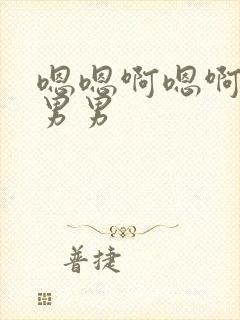 嗯嗯啊嗯啊
男男
普捷